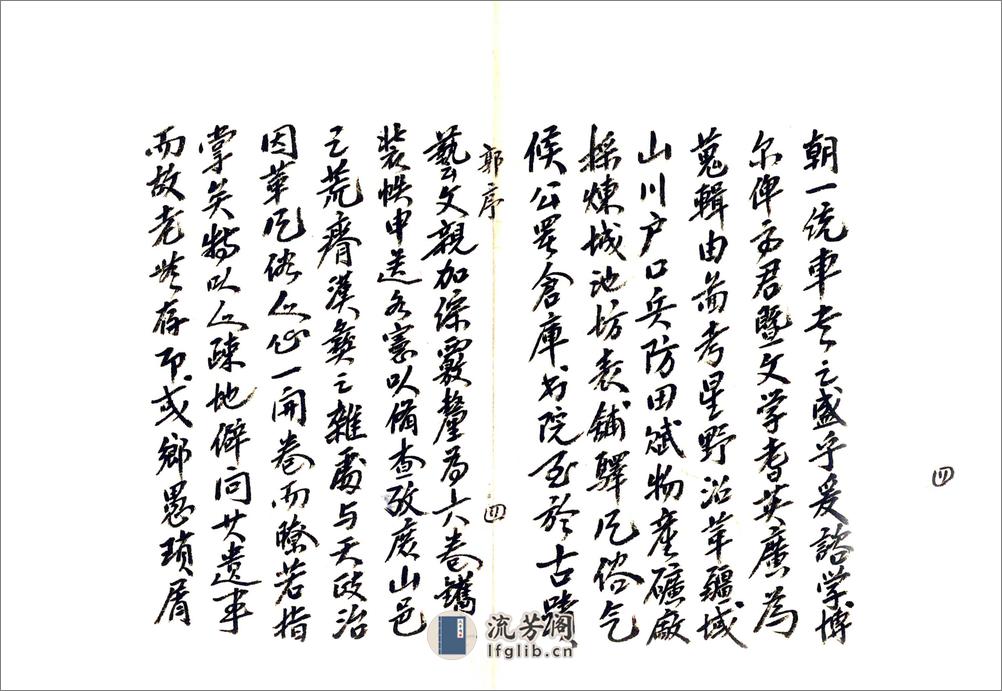 朝一統車書之盛乎爰諮学博
尔俾方君暨文学耆英廣為
蒐輯由啚考星野沿革疆域
山川户口兵防田賦物産礦厰
採煉城池坊表鋪驛風俗气
候公署倉庫书院至於古蹟
郭序
四
藝文親加綜覈釐為六卷鐫
裝帙申送各憲以備查攷庻山邑
之荒瘠漢彝之雜處与夫政治
因革风俗人心一開卷而瞭若指
掌矣特以人疎地僻问其遺事
而故老无存即或鄉愚瑣屑
四
流芳阁
lfglib.cn